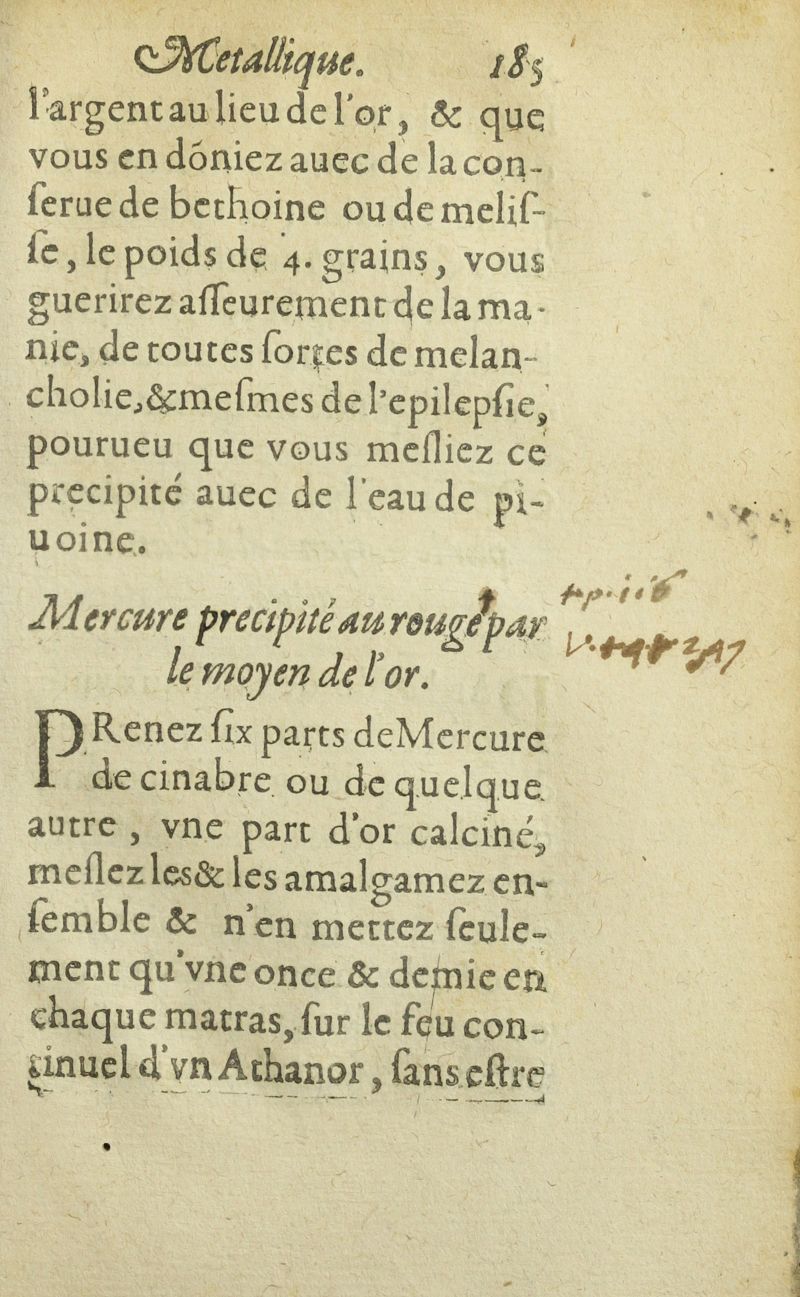 Metallique. 185
l'argent au lieu de l'or, & que
vous en dóniez auec de la con-
ſerue de bethoine ou de meliſ-
ſe, le poids de 4. grains, vous
guerirez aſſeurement de la ma-
nie, de toutes ſortes de melan-
cholie, & meſmes de l'epilepſie,
pourueu que vous meſliez ce
precipité auec de l'eau de pi-
uoine.
Mercure precipité au rouge par
le moyen de l'or.
PRenez ſix parts de Mercure
de cinabre ou de quelque
autre, vne part d'or calciné,
meſlez les & les amalgamez en-
ſemble & n'en mettez ſeule-
ment qu'vne once & demie en
chaque matras, ſur le feu con-
tinuel d'vn Athanor, ſans eſtre